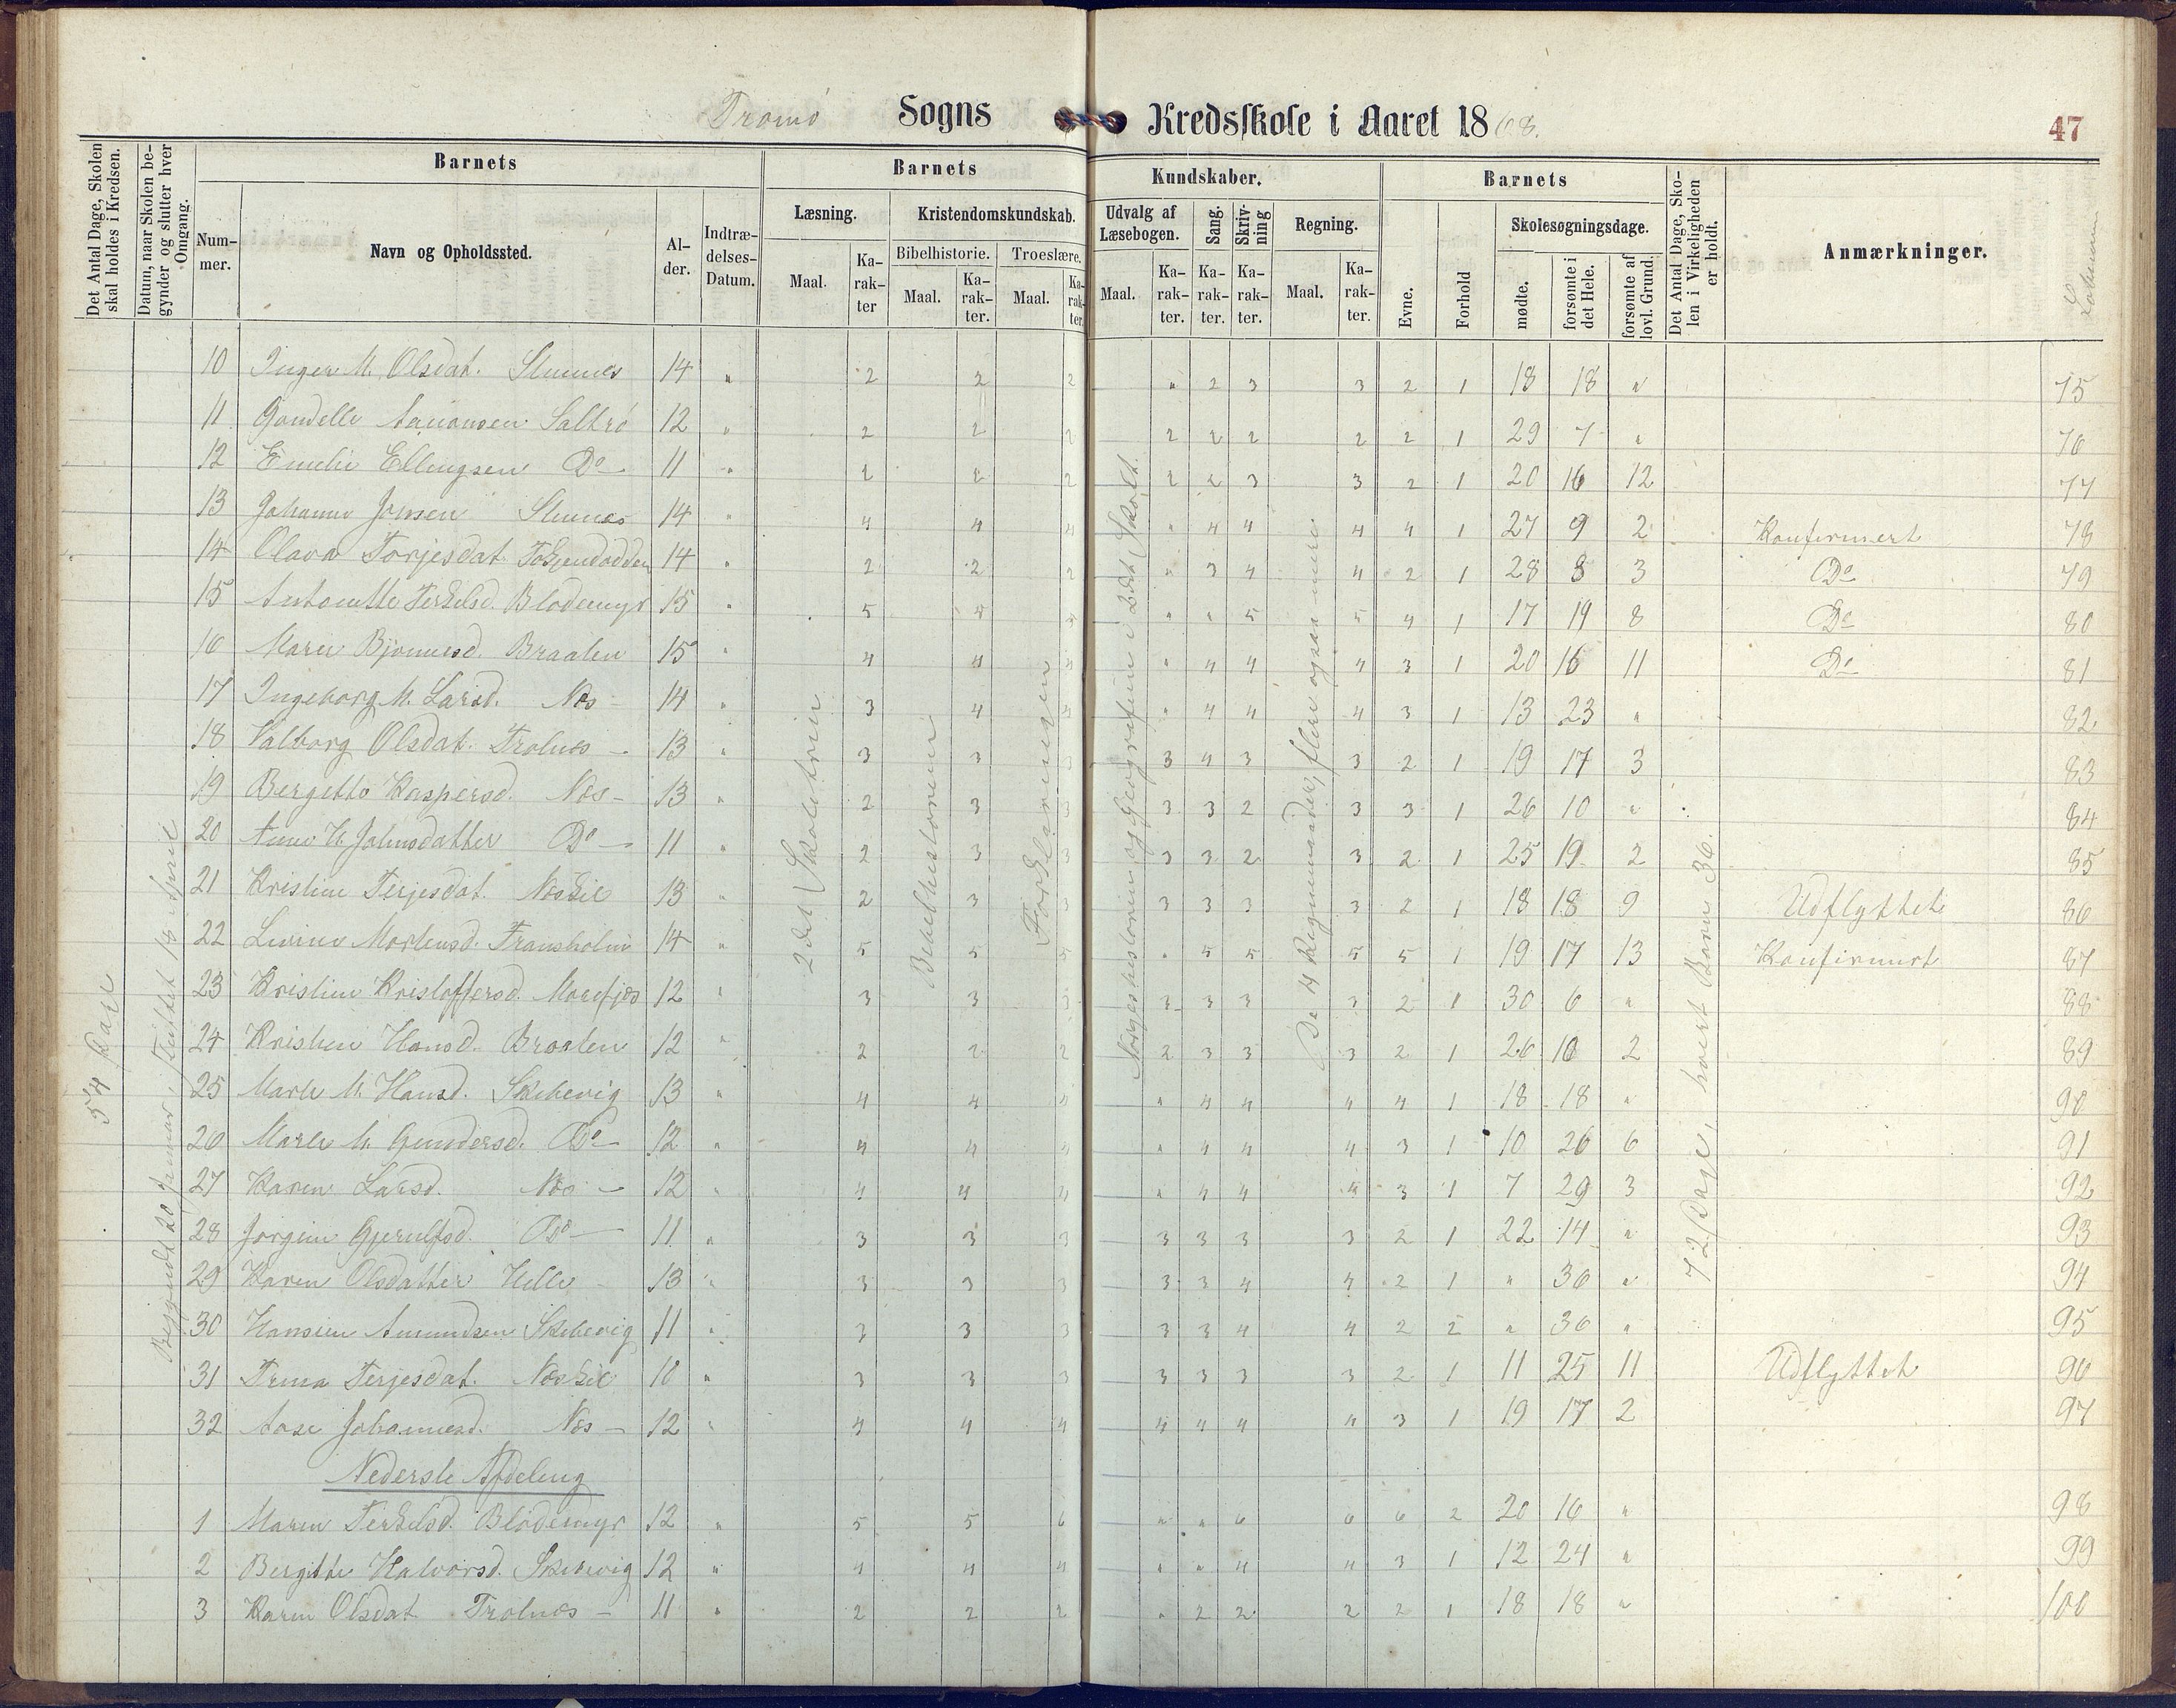 Tromø Sogns Kredsskole i Aaret 1868. 47
Det Antal Dage, Skolen skal holdes i Kredsen.
Datum, naar Skolen begynder og slutter hver Omgang.
Barnets
Nummer.
Navn og Opholdssted.
Alder.
Indtrædelses-Datum.
Barnets Kundskaber.
Læsning. Maal. Karakter
Kristendomskundskab.
Bibelhistorie. Maal. Karakter.
Troeslære. Maal. Karakter.
Udvalg af Læsebogen. Maal. Karakter.
Sang. Karakter.
Skrivning Karakter.
Regning. Maal. Karakter.
Barnets
Evne.
Forhold
Skolesøgningsdage.
mødte.
forsømte i det Hele.
forsømte af lovl. Grund.
Det Antal Dage, Skolen i Virkeligheden er holdt.
Anmærkninger.
54 Dage
Begyndt 20 Januar, sluttet 18 April
2det Skoletrin
Bibelhistorien
Forklaringen
Norgeshistorien og Geografien i 2det Skolt.
De 4 Regnemaader, flere ogsaa mere
72 Dage, hvert Barn 36.
10 Inger M. Olsdat. Stumnes 14 " 2 2 2 " 2 3 3 2 1 18 18 " 75
11 Gondelle Aanonsen Saltrø 12 " 2 2 2 2 2 2 2 2 1 29 7 " 76
12 Emelie Ellingsen Do 11 " 2 2 2 2 2 3 3 2 1 20 16 12 77
13 Johanne Jensen Stumnes 14 " 4 4 4 " 4 4 4 4 1 27 9 2 Konfirmert 78
14 Olava Torjesdat. 14 " 2 2 2 " 3 4 4 2 1 28 8 3 Do 79
15 Antonette Terkelsd. Blødemyr 15 " 5 4 " " 5 5 4 1 17 19 8 Do 80
16 Maren Bjønnesd. Braaten 15 " 4 4 4 " 4 4 4 3 1 20 16 11 Do 81
17 Ingeborg M. Larsd. Næs 14 " 3 4 4 " 4 4 4 3 1 13 23 " 82
18 Valborg Olsdat. Trolnes 13 " 3 3 3 3 4 3 3 2 1 19 17 3 83
19 Bergitte Kaspersd. Næs 13 " 2 3 3 3 3 2 3 3 1 26 10 " 84
20 Anne H. Johnsdatter Do 11 " 2 3 3 3 3 2 3 2 1 25 19 2 85
21 Kristine Terjesdat. Næskil 13 " 2 3 3 3 3 3 3 2 1 18 18 9 Udflyttet 86
22 Levine Mortensd. Fransholm 14 " 5 5 5 " 5 5 5 5 1 19 17 13 Konfirmert 87
23 Kristine Kristoffersd. Morefjæs 12 " 3 3 3 3 3 3 3 2 1 30 6 " 88
24 Kristine Hansd. Braaten 12 " 2 2 2 2 3 3 3 2 1 26 10 2 89
25 Marte M. Hansd. Skibevig 13 " 4 4 4 " 4 4 4 4 1 18 18 " 90
26 Marte M. Gundersd. Do 12 " 4 4 4 " 4 4 4 3 1 10 26 6 91
27 Karen Larsd. Næs 12 " 4 4 4 " 4 4 4 3 1 7 29 3 92
28 Jørgine Gjerulfsd. Do 11 " 3 3 3 3 3 3 3 2 1 22 14 " 93
29 Karen Olsdatter Helle 13 " 3 3 3 3 3 4 4 2 1 " 36 " 94
30 Hansine Amundsen Skibevig 11 " 3 3 3 3 3 4 4 2 2 " 36 " 95
31 Trina Terjesdat. Næskil 10 " 3 3 3 3 3 3 3 2 1 11 25 11 Udflyttet 96
32 Aase Johannesd. Næs 12 " 4 4 4 4 4 4 4 3 1 19 17 2 97
Nederste Afdeling
1 Maren Terkelsd. Blødemyr 12 " 5 5 6 " " 6 6 6 2 20 16 " 98
2 Bergitte Halvorsd. Skibevig 12 " 4 4 4 " " 4 4 3 1 12 24 " 99
3 Karen Olsdat Trolnæs 11 " 2 2 2 " 2 2 2 2 1 18 18 " 100